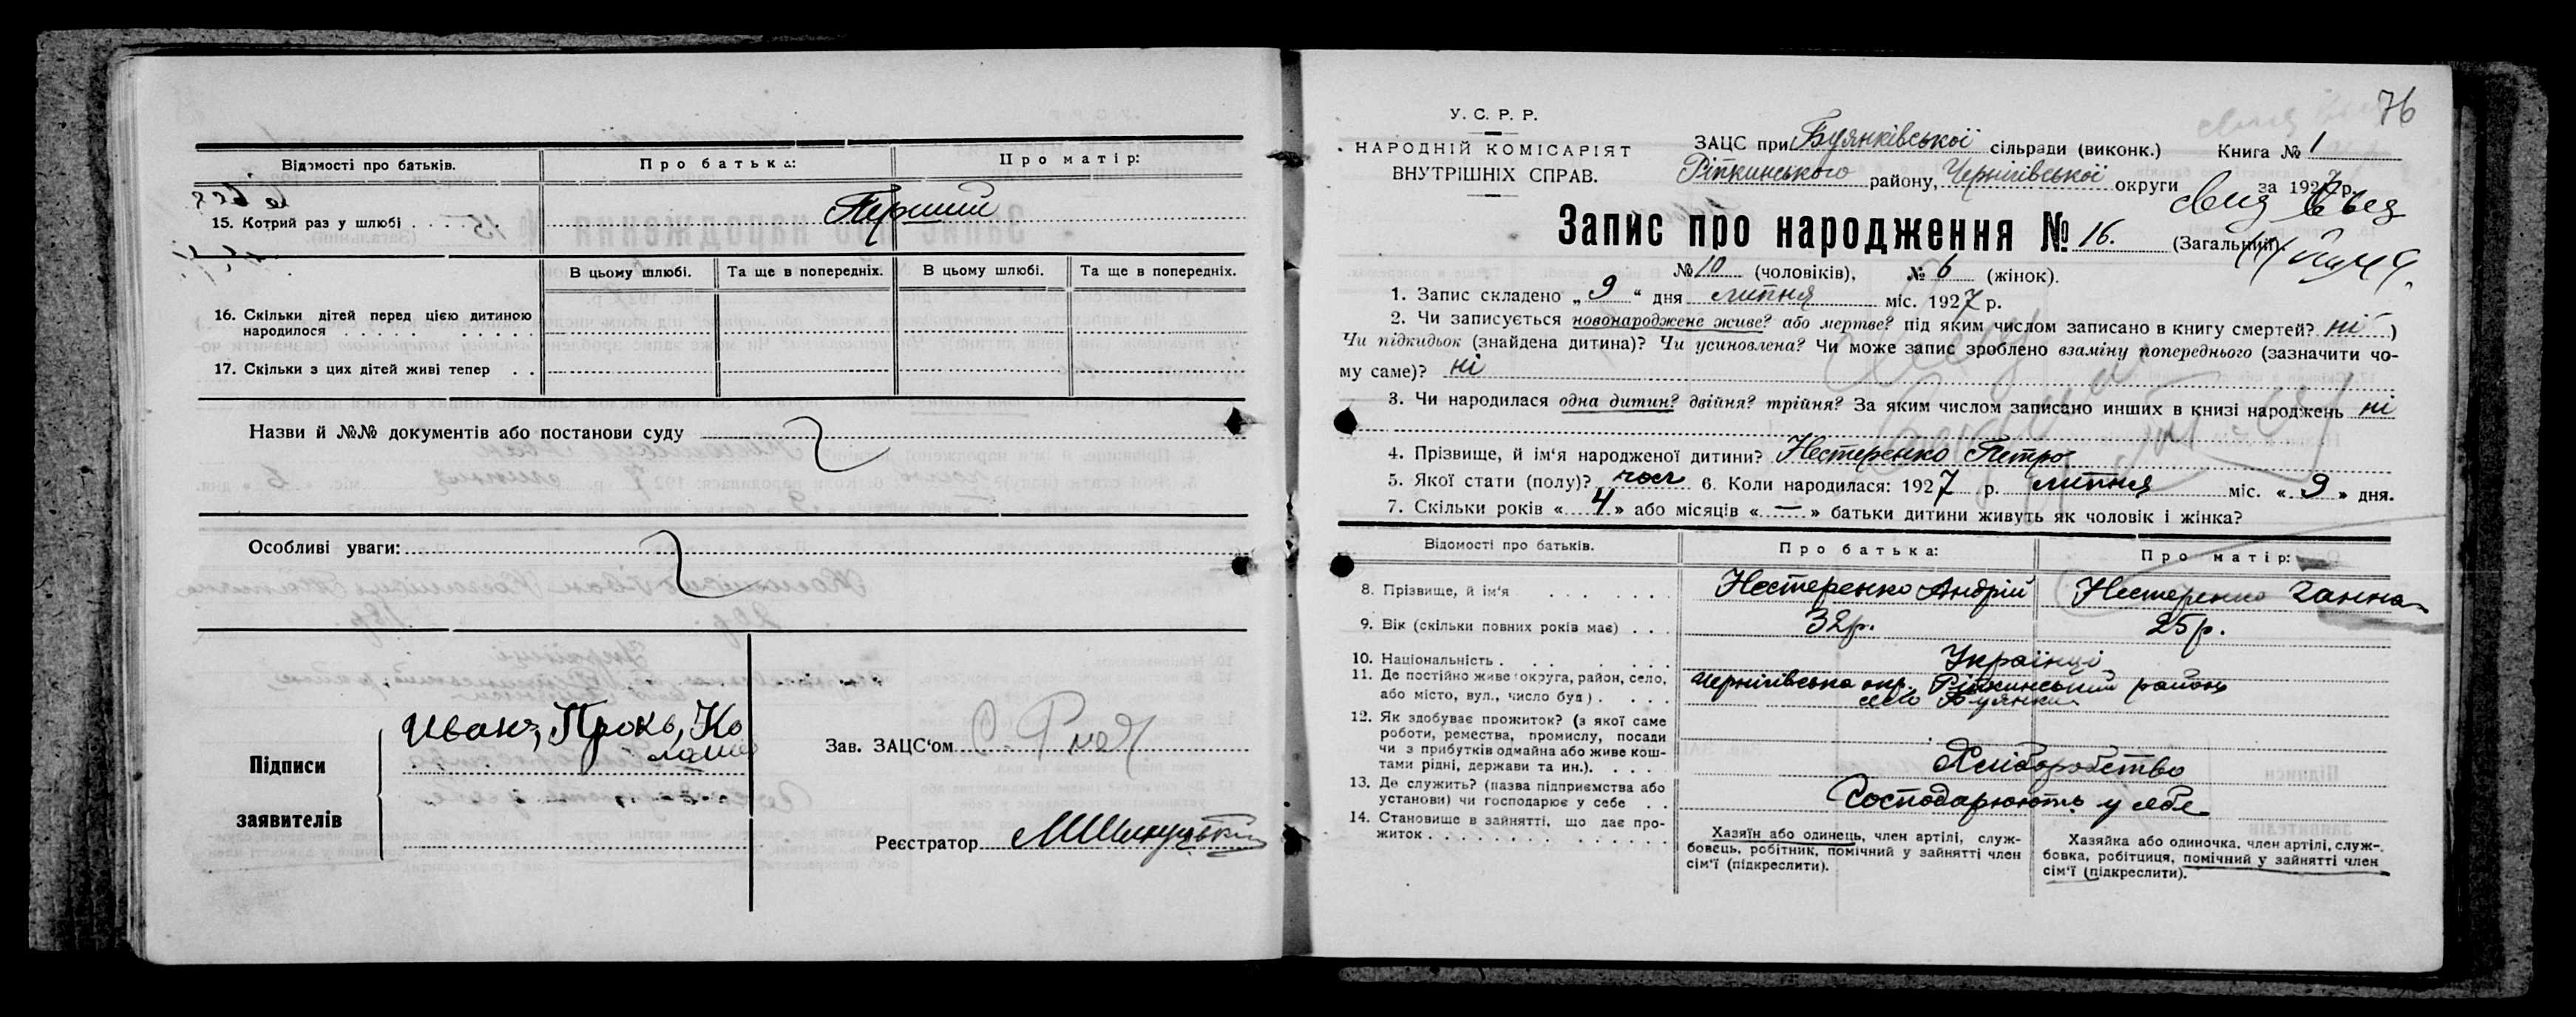 Відомості про батьків.
Про батька:
Про матір:
15. Котрий раз у шлюбі
Перший
В цьому шлюбі.
Та ще в попередніх.
В цьому шлюбі.
Та ще в попередніх.
16. Скільки дітей перед цією дитиною
народилося
17. Скільки з цих дітей живі тепер
Назви й №№ документів або постанови суду
Особливі уваги:
Підписи
заявителів
Зав. ЗАЦС'ом
Реєстратор
76
У. С. Р. Р.
НАРОДНІЙ КОМІСАРІЯТ
ВНУТРІШНІХ СПРАВ.
ЗАЦС при Буянківської сільради (виконк.) Книга № 1
Ріпкинського району, Чернігівської округи за 1927 р.
Запис про народження № 16. (Загальний).
№ 10 (чоловіків), № 6 (жінок).
1. Запис складено „9“ дня липня міс. 1927 р.
2. Чи записується новонароджене живе? або мертве? під яким числом записано в книгу смертей? ні)
Чи підкидьок (знайдена дитина)? Чи усиновлена? Чи може запис зроблено взаміну попереднього (зазначити чо-
му саме)? ні
3. Чи народилася одна дитин? двійня? трійня? За яким числом записано инших в книзі народжень ні
4. Прізвище, й ім'я народженої дитини? Нестеренко Петро
5. Якої стати (полу)? чол 6. Коли народилася: 1927 р. липня міс. «9» дня.
7. Скільки років «4» або місяців «—» батьки дитини живуть як чоловік і жінка?
Відомості про батьків.
Про батька:
Про матір:
8. Прізвище, й ім'я
Нестеренко Андрій
Нестеренко Ганна
9. Вік (скільки повних років має)
32р.
25р.
10. Національність
Українці
11. Де постійно живе (округа, район, село,
або місто, вул., число буд)
Чернігівська окр. Ріпкинський район
село Буянки
12. Як здобуває прожиток? (з якої саме
роботи, ремества, промислу, посади
чи з прибутків одмайна або живе кош-
тами рідні, держави та ин.).
Хліборобство
13. Де служить? (назва підприємства або
установи) чи господарює у себе
Господарюють у себе
14. Становище в зайнятті, що дає про-
житок
Хазяїн або одинець, член артілі, служ-
бовець, робітник, помічний у зайнятті член
сім'ї (підкреслити).
Хазяйка або одиночка, член артілі, служ-
бовка, робітниця, помічний у зайнятті член
сім'ї (підкреслити).